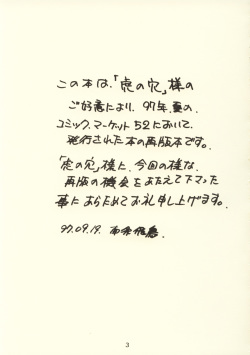 この本は、「虎の穴」様の
ご好意により、97年、夏の、
コミック、マーケット52において、
発行された本の再版本です。
「虎の穴」様に、今回の様な、
再版の機会をあたえて下さった
事にあらためてお礼申し上げます。
97.09.19.
3